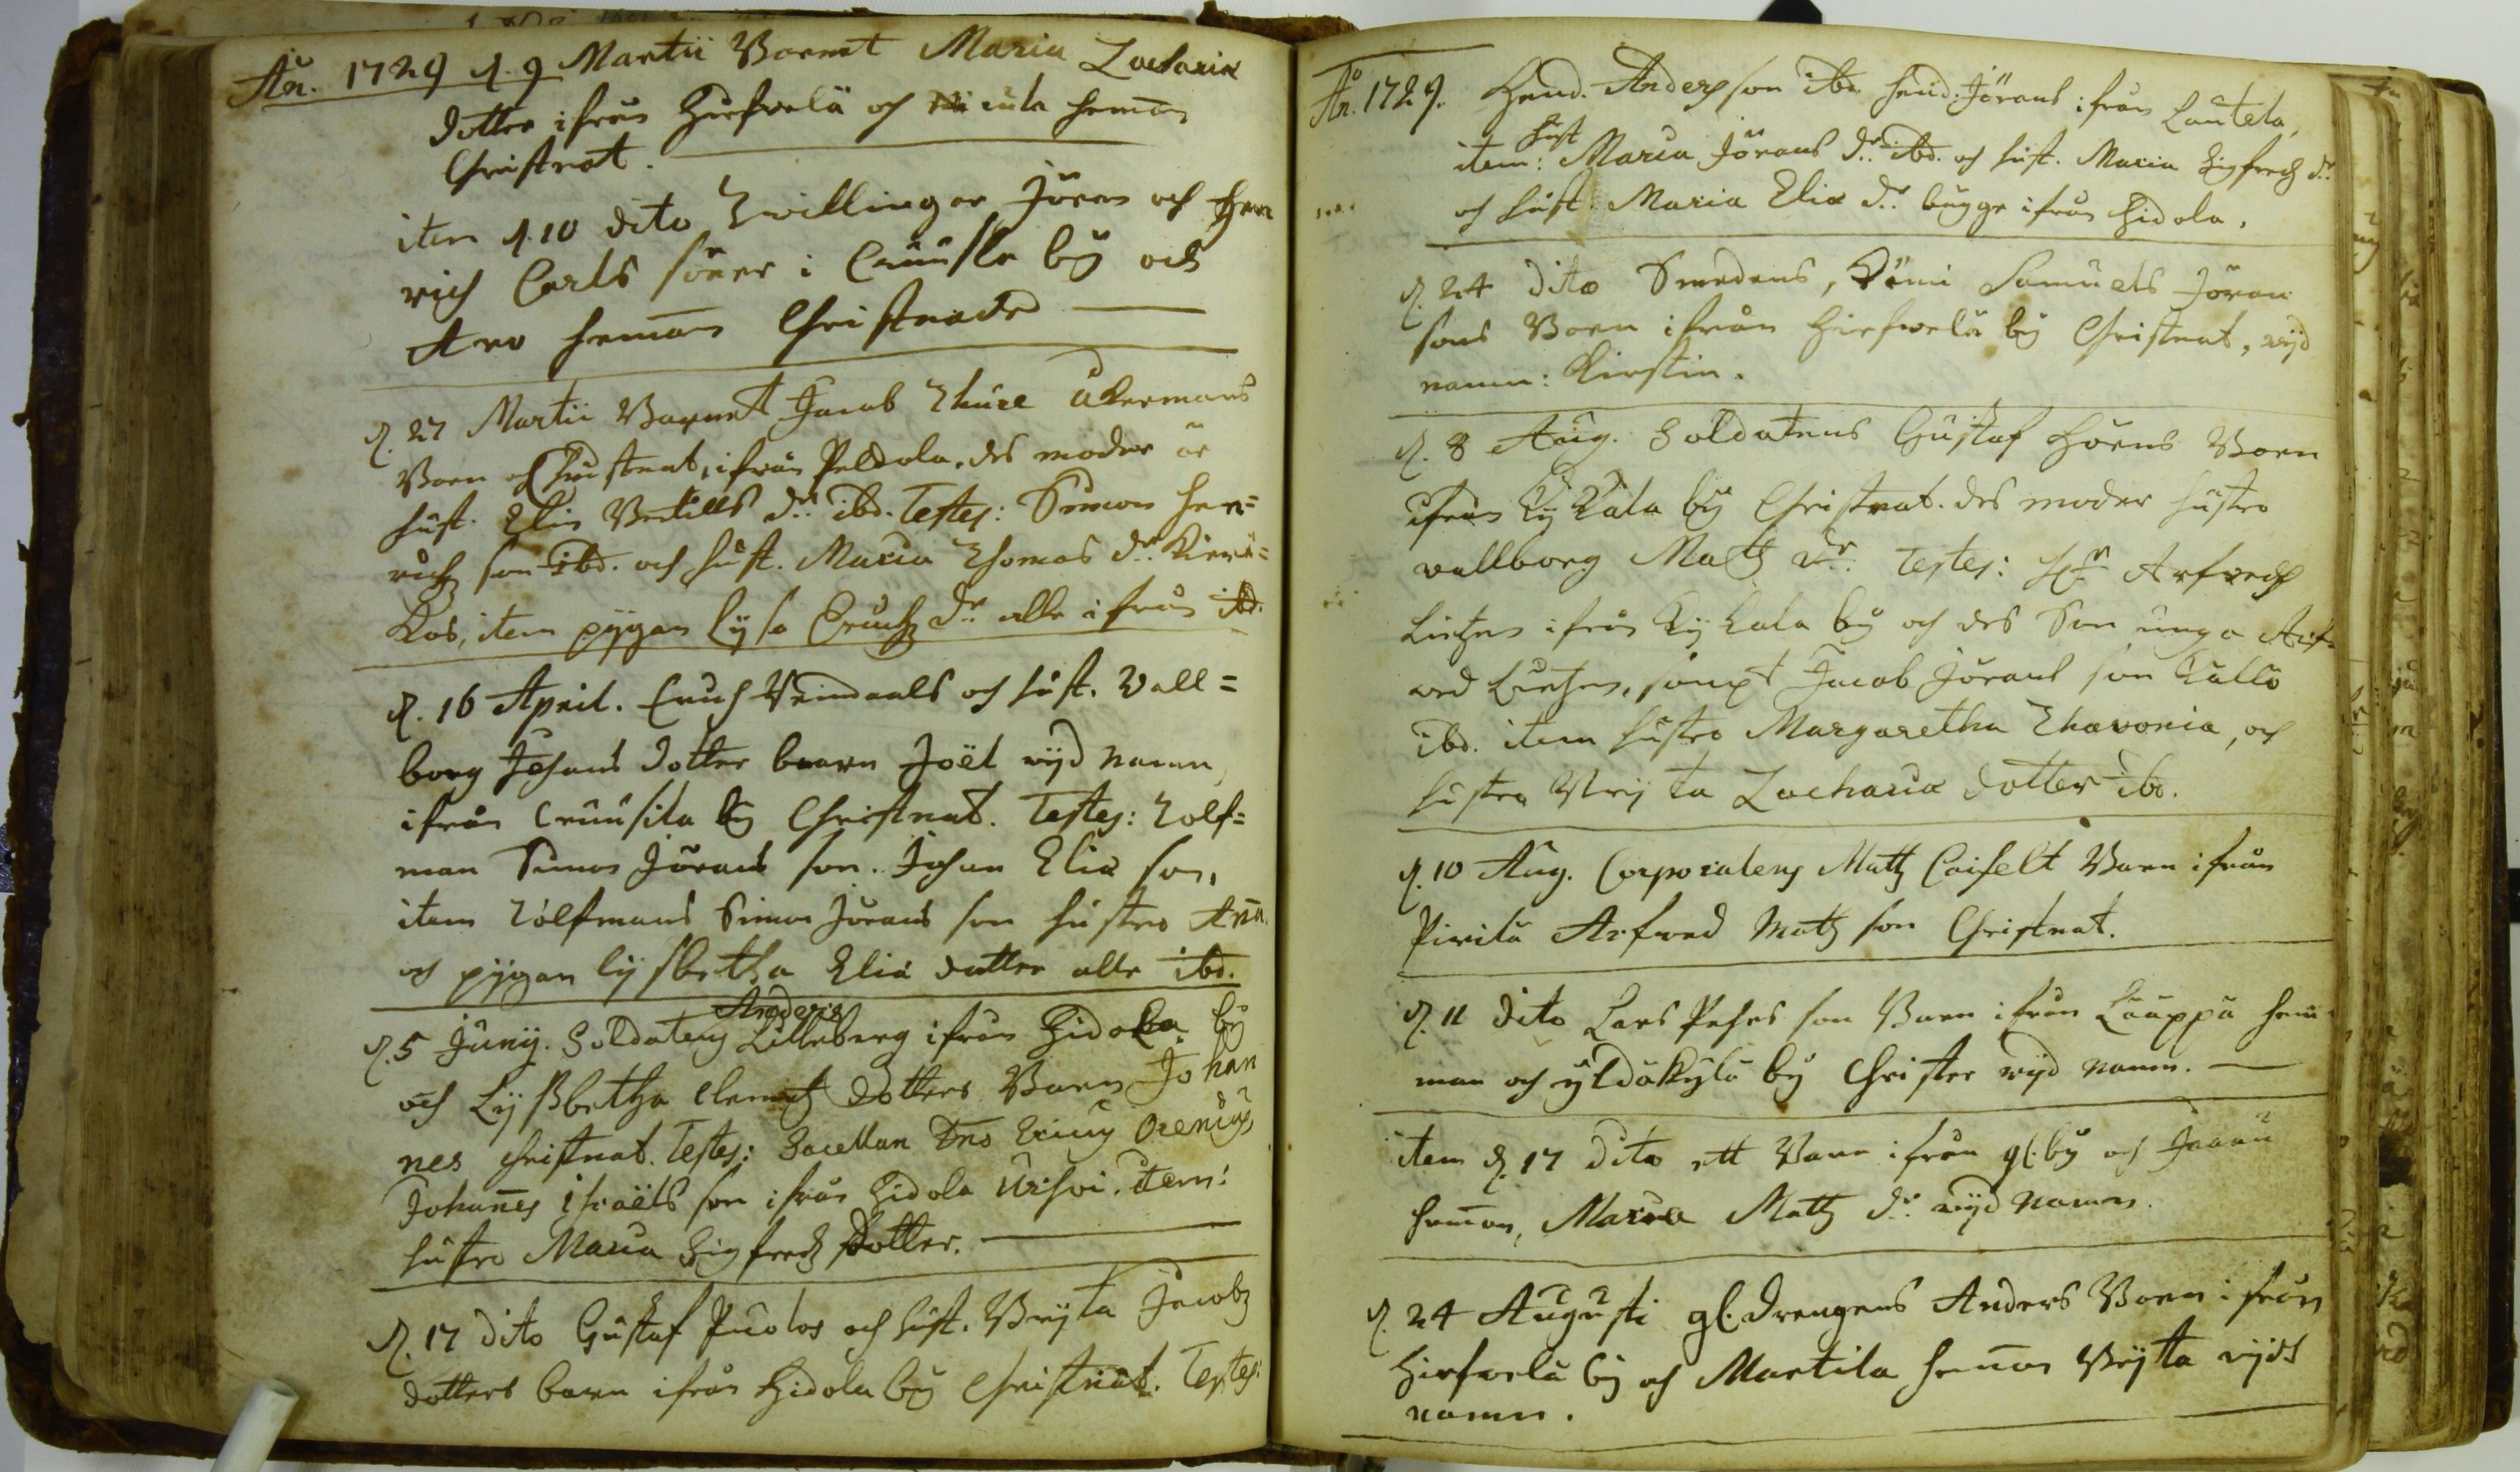 An. 1729 d. 9 Martii Barnet Maria Zachariæ
dotter ifrån Hirfwelä och
Christnat.
item d. 10 dito Zwillingar Jören och Hen
rich Carls söner i by och
Aro heman Christnade
d. 27 Martii Barnet Jacob Thure Åkermans
Barn och Christnat, ifrån Peldola. des moder är
hust. Elin Bertills dr. ibd. Testes: Simon Hen=
richz son ibd. och hust. Maria Thomas dr.
item pijgan Lijsa Erichz dr alle ifrån ibd.
d. 16 April. Erich och hust. Vall=
borg Johans dotter baarn Joël wijd namn,
ifrån by Christnat. Testes: Tolf=
man Simon Jörans son. Johan Eliæ son,
item Tolfmans Simon Jörans son hustro Anna
och pijgan Lijsbetha Eliæ dotter alle ibd.
Anders
d. 5 Junij. Soldatens Lilleberg ifrån Hidola by
och Lijsbetha Clemetz dotters Barn Johan
nes christnat. Testes: Sacellan Dno Ericus Orenius,
Johannes Israëls son ifrån Hidola item:
hustro Maria Sigfredz dotter.
d. 17 dito Gustaf och hust. Brijta Jacobz
dotters barn ifrån Hidola by Christnat. Testes:
An. 1729. Hend. Anders son ibd. hend. Jörans ifrån Lautela,
hust
item: Maria Jörans dr. ibd. och hust. Maria Sigfredz dr.
och hust. Maria Eliæ dr. bägge ifrån Hidola.
d. 24 dito Smedens, Samuels Jöran
sons Barn ifrån Hirfwelä by Christnat, wijd
namn: Kirstin.
d. 8 Aug. Soldatens Gustaf Hörns Barn
ifrån Kykala by Christnat. des moder hustro
wallborg Matz dr. Testes: Hr. Arfwedh
Lietzen ifrån Kykala by och des Son unga Arf=
wed Lietzen, sampt Jacob Jörans son Kallo
ibd. item hustro Margaretha Thavonia, och
hustro Brijta Zachariæ dotter ibd.
d. 10 Aug. Corporalens Matz Caifelt Barn ifrån
Pirilä Arfwed Matz son Christnat.
d. 11 dito Lars Pehrs son Barn ifrån Laappa hem
man och yldäkylä by Christer wijd namn.
item d. 17 dito ett Barn ifrån gl. by och
heman, Maria Matz dr. wijd namn.
d. 24 Augusti gl. drengens Anders Barn ifrån
Hirfwelä by och Martila heman Brijta wijd
namn.